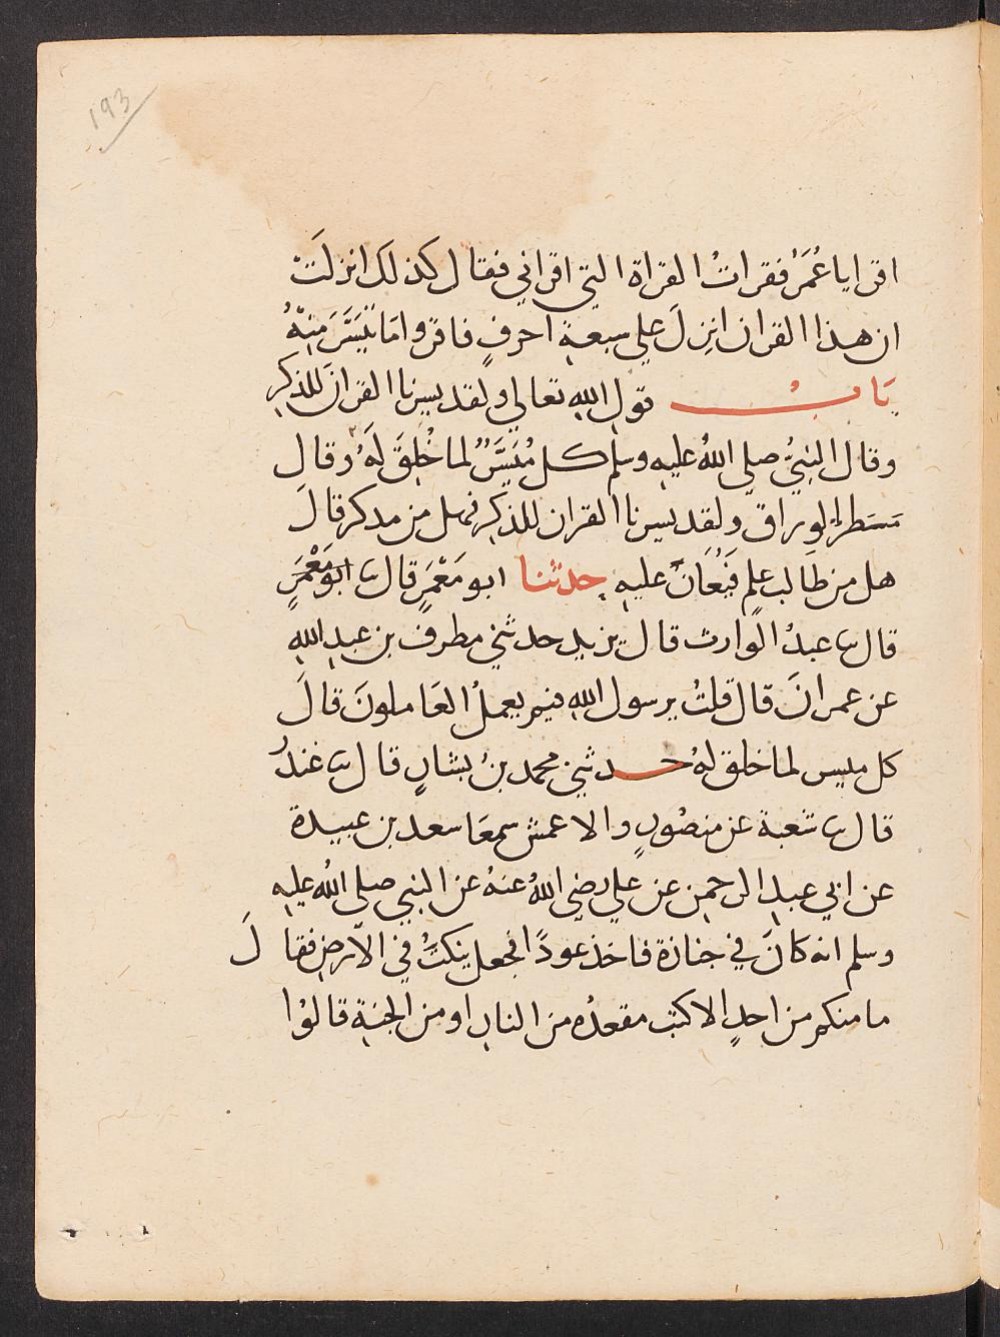 193
اقرا يا عُمَرُ فقراتُ القراة التي اقراني فقال كذلك انزلَتْ
ان هذا القران انزِلَ علي سبعةِ احرفٍ فاقروا مَا تَيَسَّرَ مِنْهُ
بَابُ قولِ اللهِ تعالي ولقد يسرنا القرانَ للذكرِ
وقال النبيُّ صلي اللهُ عليهِ وسلم كل مُيَسَّرٌ لما خُلِقَ لَهُ وقال
مَسَطر الوراق ولقد يسرنا القران للذكرِ فهل من مدكر قالَ
هل من طالب علمٍ فَيُعَانَ عليهِ حدثنا ابو مَعْمَرٍ قال ثنا ابو مَعْمَرٍ
قال ثنا عبدُ الوارث قال يزيد حدثني مطرف بن عبدِ اللهِ
عن عمرانَ قال قلتُ يرسول اللهِ فيم يعملُ العَاملونَ قالَ
كل ميسر لما خلق لهُ حدثني محمد بنُ بشارٍ قال ثنا غندرُ
قال ثنا شعبة عن منصُورٍ والاعمش سمعَا سعد بن عبيدة
عن ابي عبدِ الرحمن عن علي رضي اللهُ عنهُ عن النبي صلي اللهُ عليهِ
وسلم انه كانَ في جنازة فاخذ عودًا فجعل ينكتُ في الارضِ فقالَ
ما منكم من احدٍ الا كتب مقعدُه من النارِ او من الجنةِ قالوُا